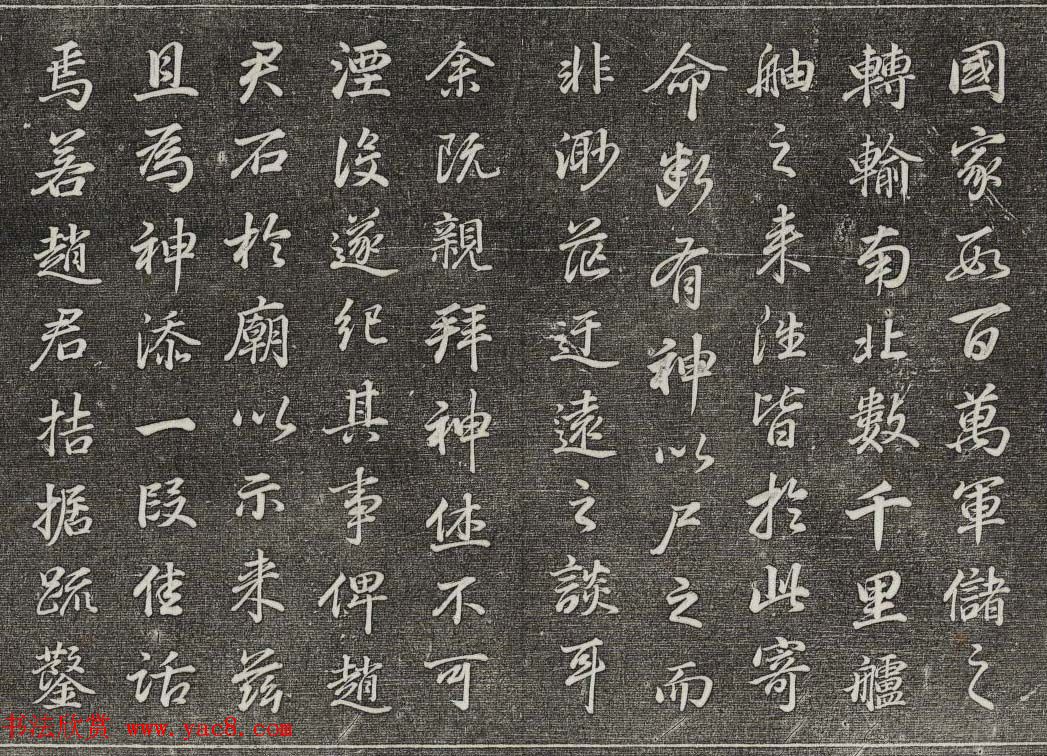 國家百萬軍儲之
轉輸南北數千里艫
舳之来往皆於此寄
命斷有神以尸之而
非渺茫迂遠之談耳
余既親拜神休不可
湮没遂紀其事俾趙
君石於廟以示来茲
且為神添一段佳話
焉若趙君拮据疏鑿
书法欣赏 www.yac8.com